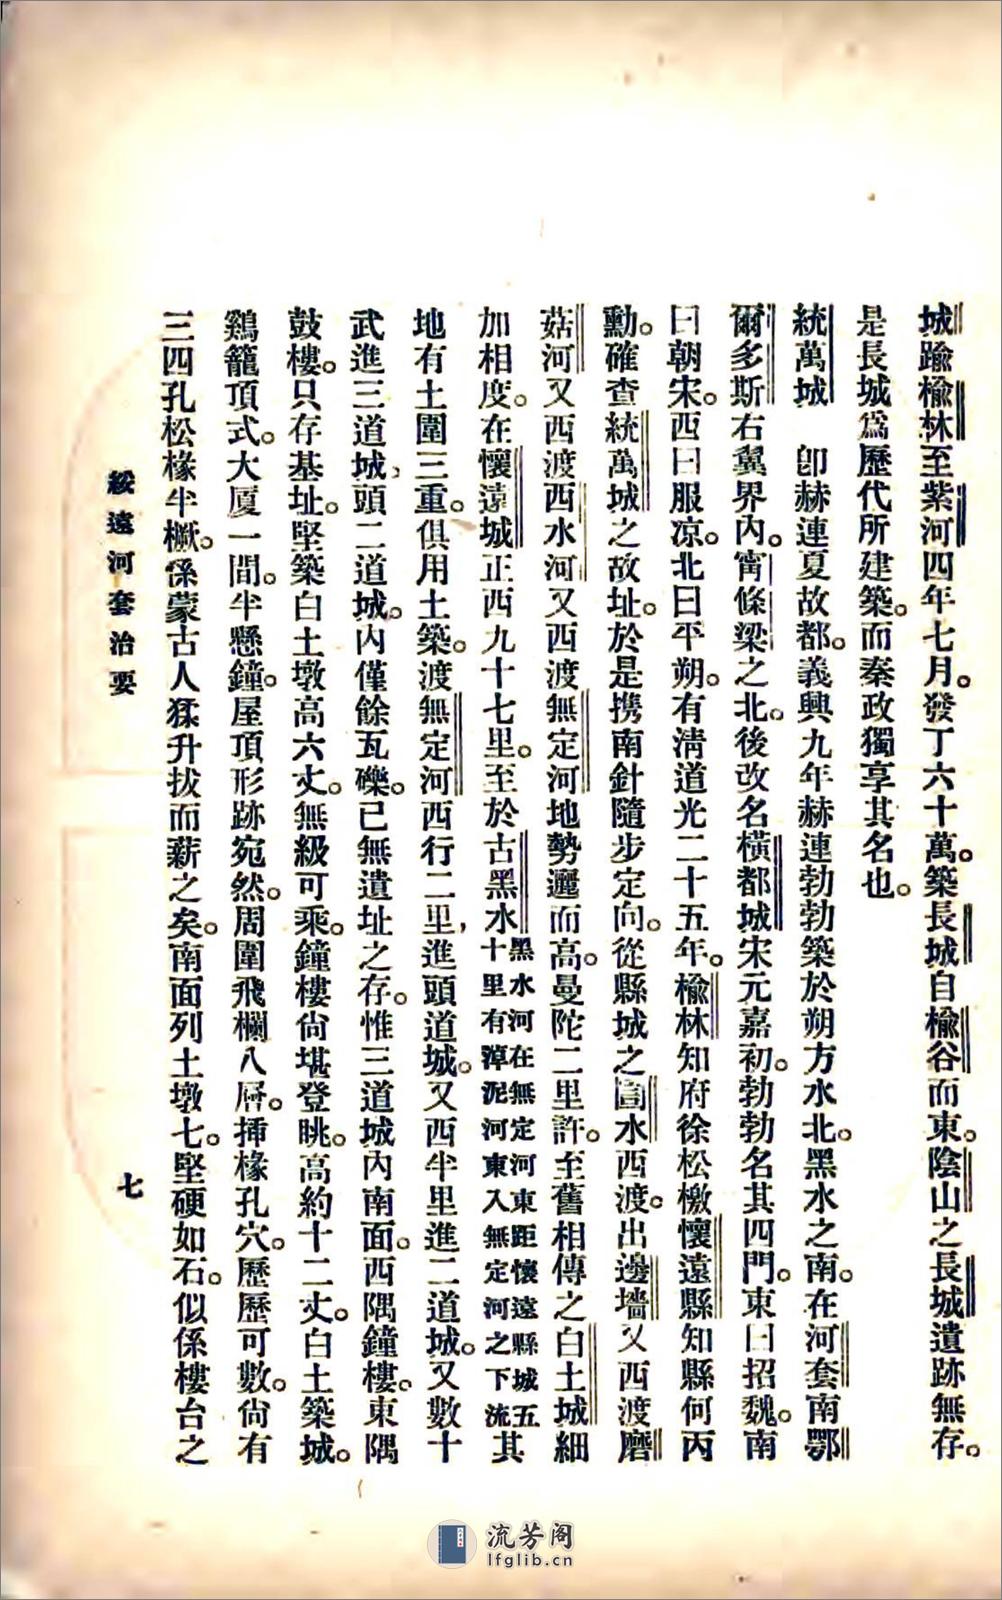 城踰榆林至紫河四年七月。發丁六十萬。築長城自榆谷而東。陰山之長城遺跡無存。
是長城爲歷代所建築。而秦政獨享其名也。
統萬城　卽赫連夏故都。義興九年赫連勃勃築於朔方水北。黑水之南。在河套南鄂
爾多斯右翼界內。甯條梁之北。後改名橫都城宋元嘉初。勃勃名其四門。東曰招魏。南
曰朝宋。西曰服凉。北曰平朔。有淸道光二十五年。榆林知府徐松檄懷遠縣知縣何丙
勳。確查統萬城之故址。於是携南針隨步定向。從縣城之圁水西渡。出邊墻又西渡磨
菇河又西渡西水河又西渡無定河地勢邐而高。曼陀二里許。至舊相傳之白土城細
加相度。在懷遠城正西九十七里。至於古黑水黑水河在無定河東距懷遠縣城五十里有淖泥河東入無定河之下流其
地有土圍三重。俱用土築。渡無定河西行二里，進頭道城。又西半里進二道城。又數十
武進三道城，頭二道城。內僅餘瓦礫。已無遺址之存。惟三道城內南面。西隅鐘樓。東隅
鼓樓。只存基址。堅築白土墩高六丈。無級可乘。鐘樓尙堪登眺。高約十二丈。白土築城。
鷄籠頂式。大厦一間。半懸鐘。屋頂形跡宛然。周圍飛欄八層。揷椽孔穴。歷歷可數。尙有
三四孔松椽半橛。係蒙古人猱升拔而薪之矣。南面列土墩七。堅硬如石。似係樓台之
綏遠河套治要
七
流芳阁
lfglib.cn